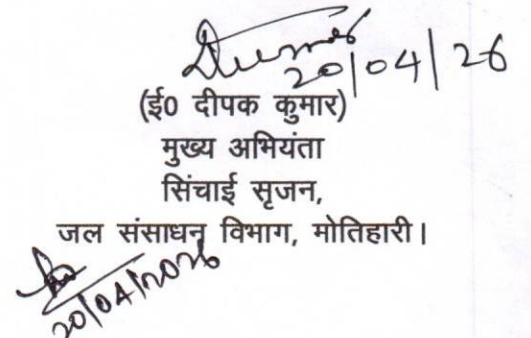 20/04/26
(ई0 दीपक कुमार)
मुख्य अभियंता
सिंचाई सृजन,
जल संसाधन विभाग, मोतिहारी।
20/04/2026